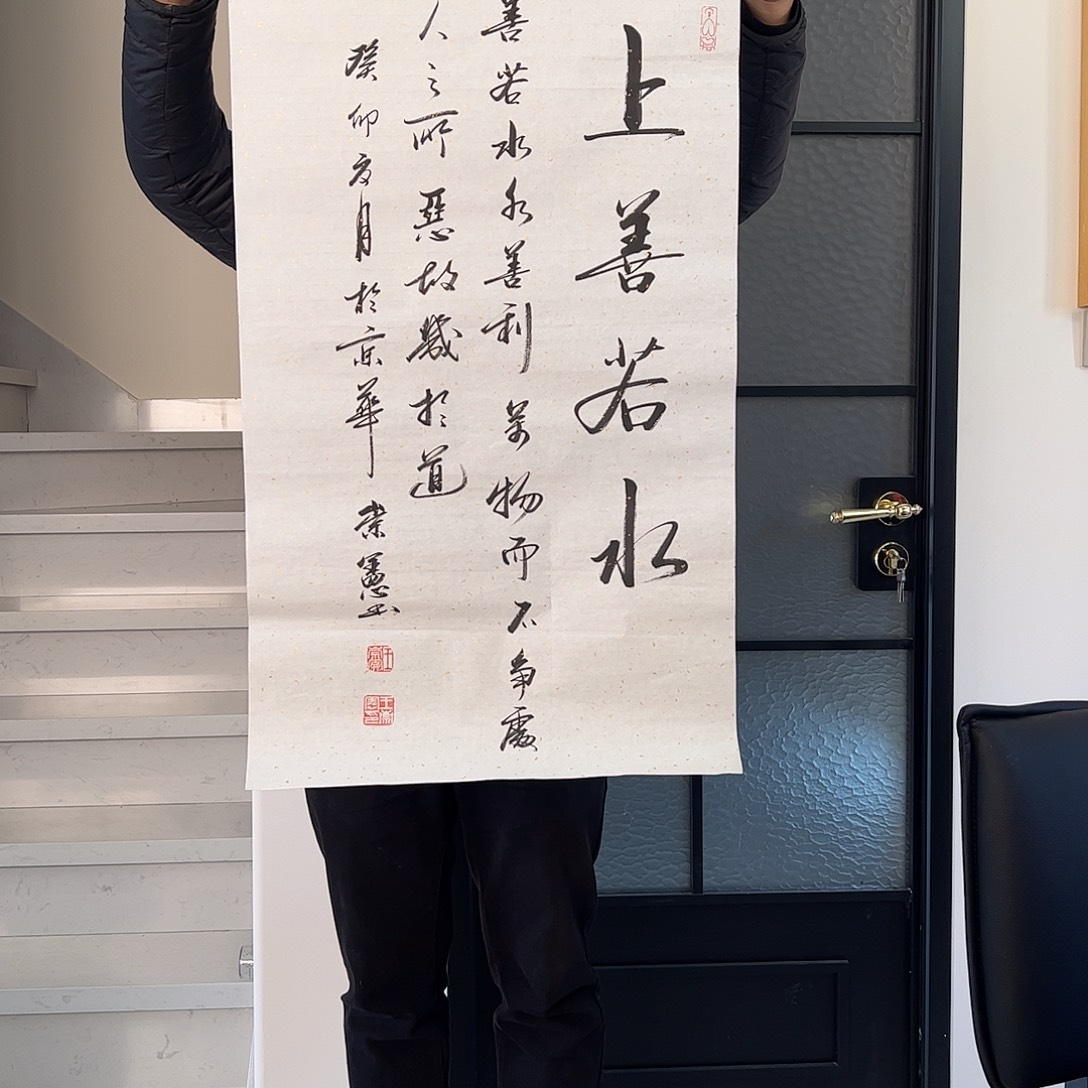 上善若水
善若水水善利萬物而不爭處
人之所惡故幾於道
癸卯亥月於京華崇憲書